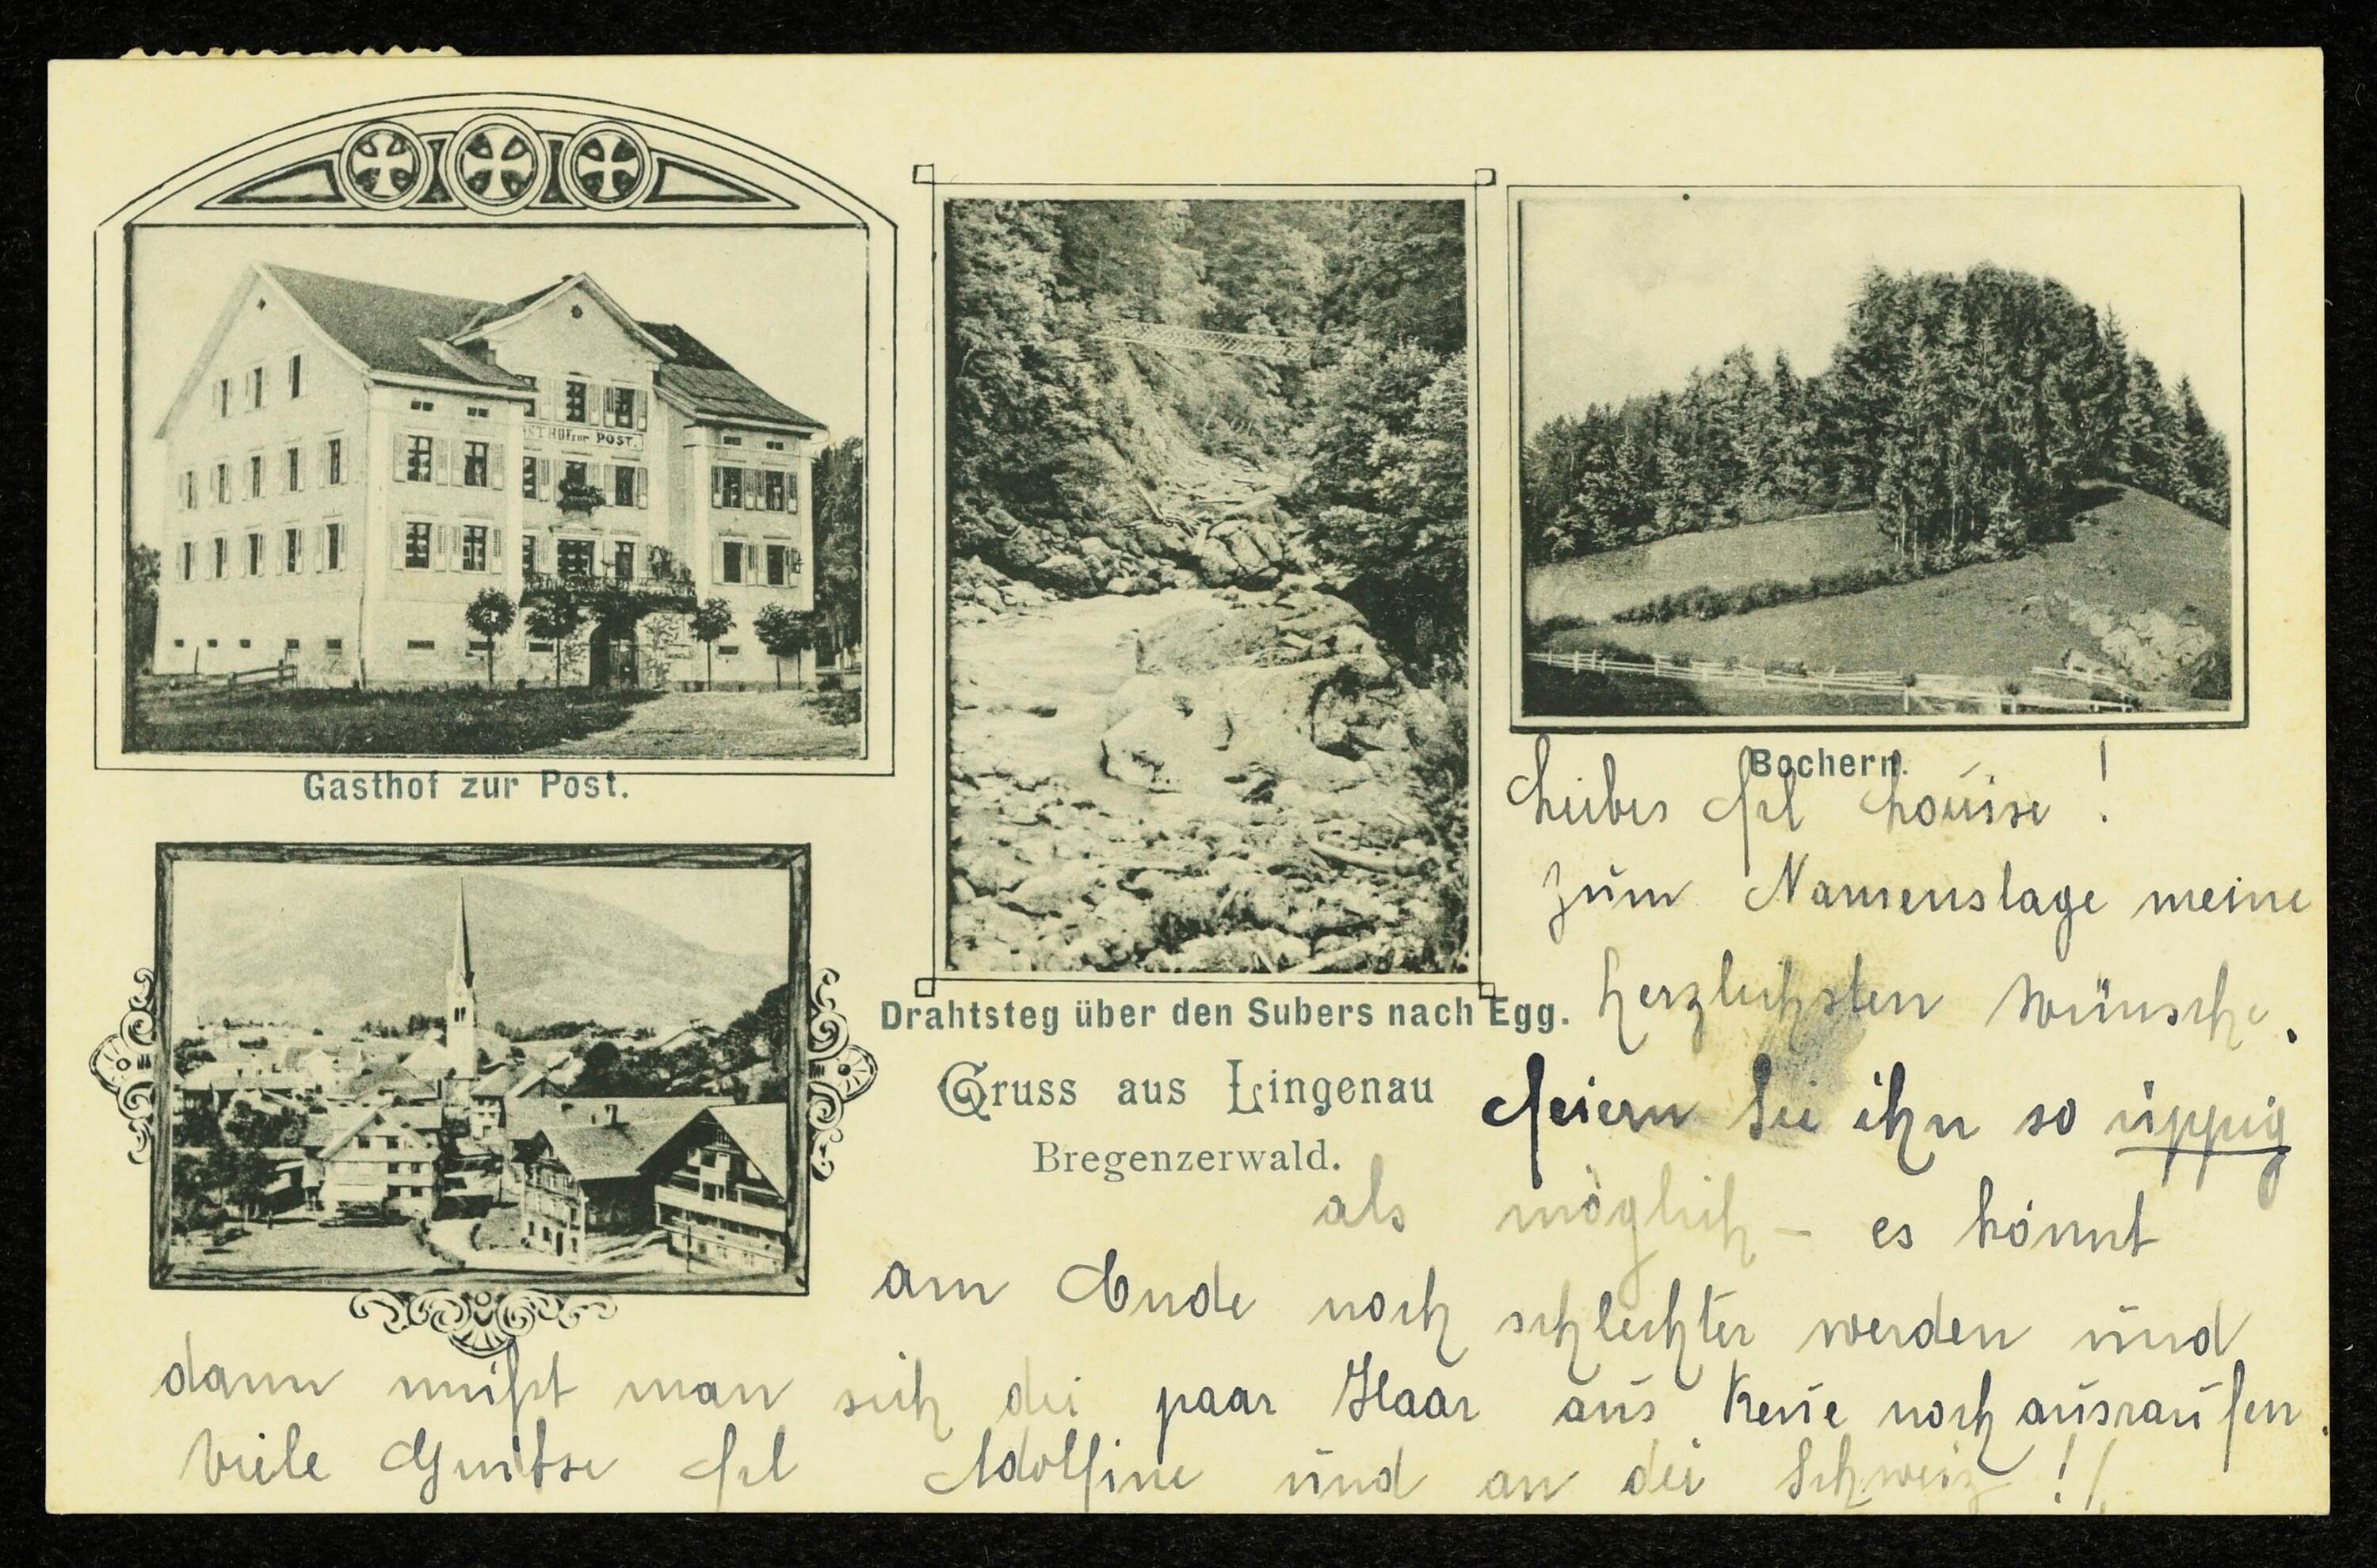 GASTHOF zur POST.
Gasthof zur Post.
Drahtsteg über den Subers nach Egg.
Bochern.
Gruss aus Lingenau
Bregenzerwald.
Liebes Frl Louise !
Zum Namenstage meine
herzlichsten Wünsche.
Feiern Sie ihn so üppig
als möglich – es könnt
am Ende noch schlechter werden und
dann müßt man sich die paar Haar aus Reue noch ausraufen.
Viele Grüße Frl Adolfine und an die Schweiz !!